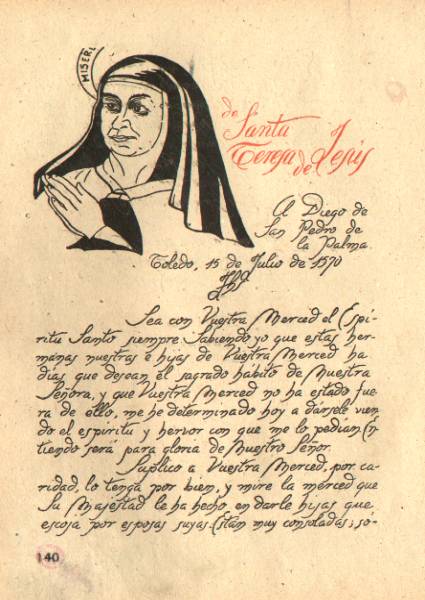 MISERI
de
Santa
Teresa de Jesús
Al Diego de
San Pedro de
la Palma.
Toledo, 15 de Julio de 1570
Jhs
Sea con Vuestra Merced el Espí-
ritu Santo siempre. Sabiendo yo que estas her-
manas nuestras e hijas de Vuestra Merced ha
días que desean el sagrado hábito de Nuestra
Señora, y que Vuestra Merced no ha estado fue
ra de ello, me he determinado hoy a dársele vien
do el espíritu y hervor con que me lo pedían. En
tiendo será para gloria de Nuestro Señor.
Suplico a Vuestra Merced, por ca-
ridad, lo tenga por bien, y mire la merced que
Su Majestad le ha hecho en darle hijas que
escoja por esposas suyas. Están muy consoladas; so-
140